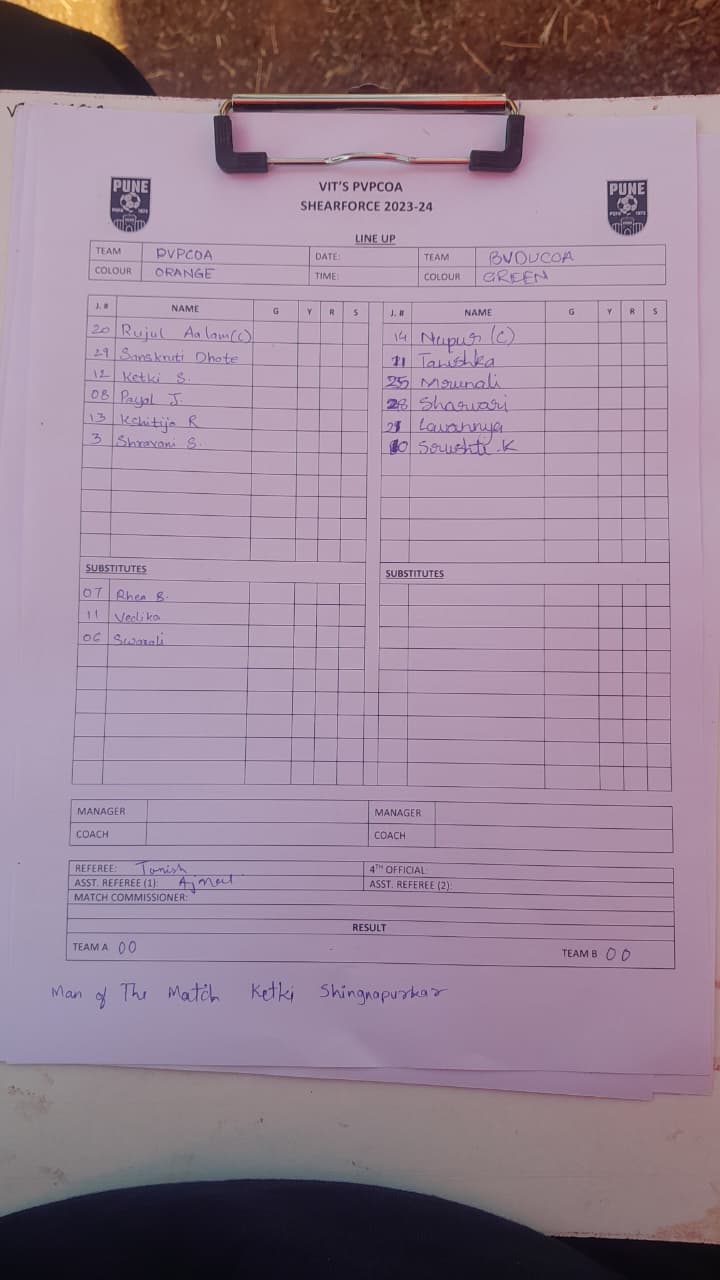 PUNE
VIT'S PVPCOA
SHEARFORCE 2023-24
PUNE
LINE UP
TEAM PVPCOA DATE: TEAM BVDUCOA
COLOUR ORANGE TIME: COLOUR GREEN
J. # NAME G Y R S J. # NAME G Y R S
20 Rujul Aalam(c) 14 Nupur (C)
29 Sanskruti Dhote 11 Tanishka
12 Ketki S. 25 Mrunali
08 Payal J. 28 Sharvari
13 Kshitija R 21 Lavannya
3 Shravani S. 10 Srushti.K
SUBSTITUTES SUBSTITUTES
07 Rhea B.
11 Vedika
06 Swarali
MANAGER MANAGER
COACH COACH
REFEREE: Tanish 4TH OFFICIAL:
ASST. REFEREE (1): ASST. REFEREE (2):
MATCH COMMISSIONER:
RESULT
TEAM A 00 TEAM B 00
Man of The Match Ketki Shingnapurkar